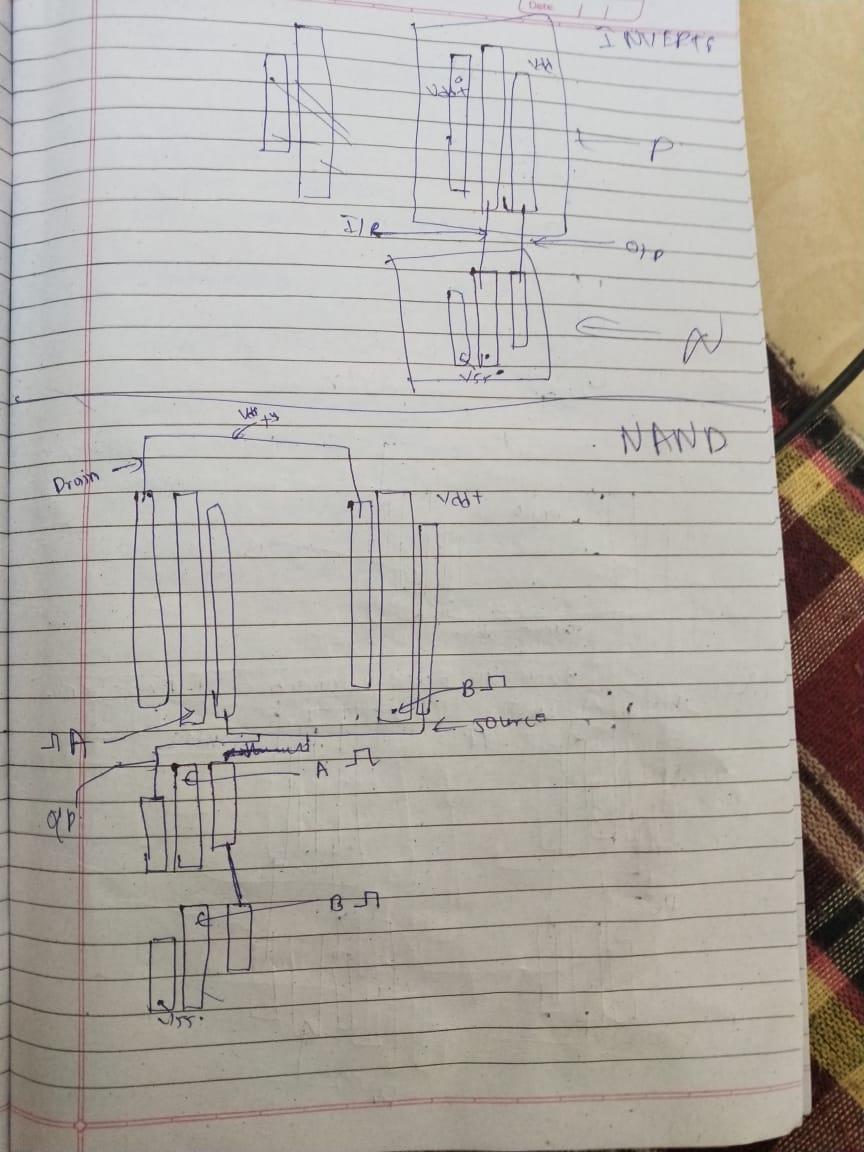 Date
INVERTE
Vdd
Vdd+
P
I/P
O/P
N
Vss
NAND
Vdd
+
Drain
Vdd+
B
A
source
A
O/P
B
Vss